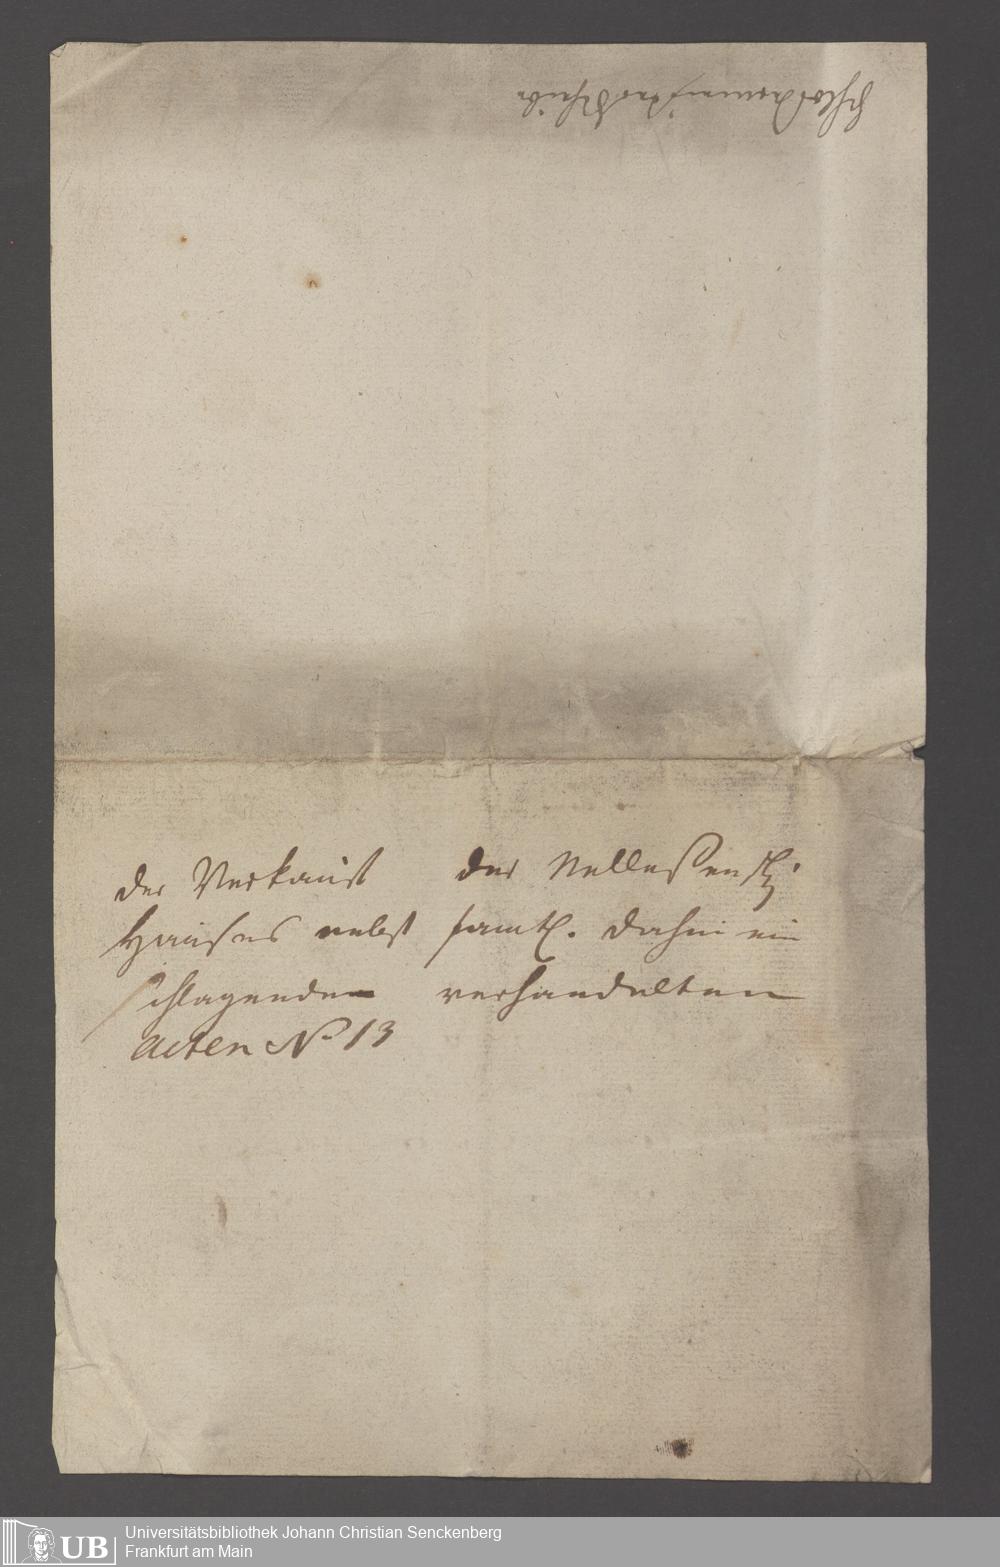 der Verkauf des Nelleßensch.
Hauses nebst samtl. dahin ein
schlagenden verhandelten
Acten No 13
UB
Universitätsbibliothek Johann Christian Senckenberg
Frankfurt am Main